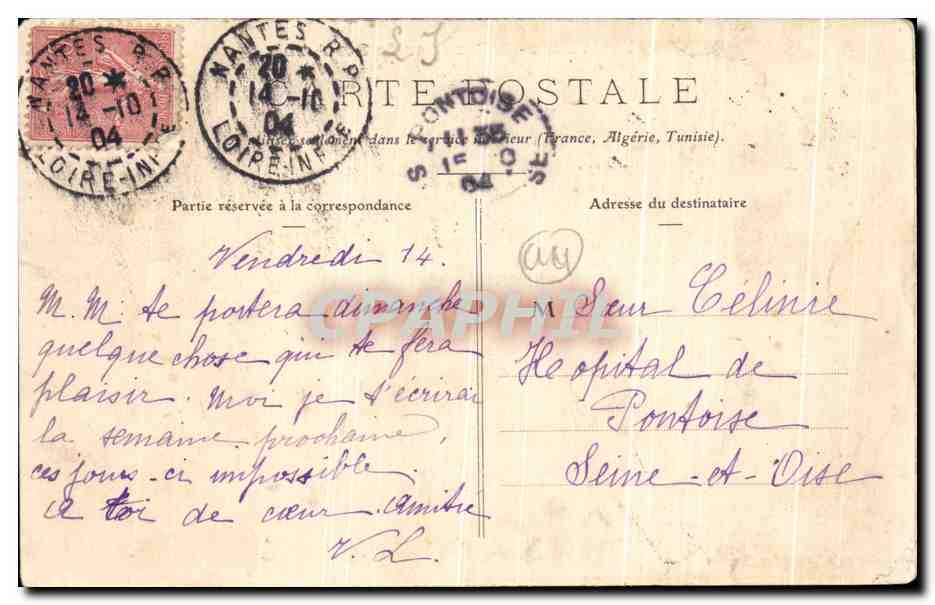 NANTES R.P.
20 *
14 -10
04
LOIRE-INF
NANTES R.P.
20 *
14 -10
04
LOIRE-INFRE
PONTOISE
04
S
SE
CARTE POSTALE
dans le service intérieur (France, Algérie, Tunisie).
Partie réservée à la correspondance
Adresse du destinataire
Vendredi 14.
M. M. te portera dimanche
quelque chose qui te fera
plaisir. Moi je t'écrirai
la semaine prochaine,
ces jours-ci impossible.
A toi de cœur. Amitié
V. L.
M Sœur Célinie
Hopital de
Pontoise
Seine-et-Oise
44
CPAPHIL